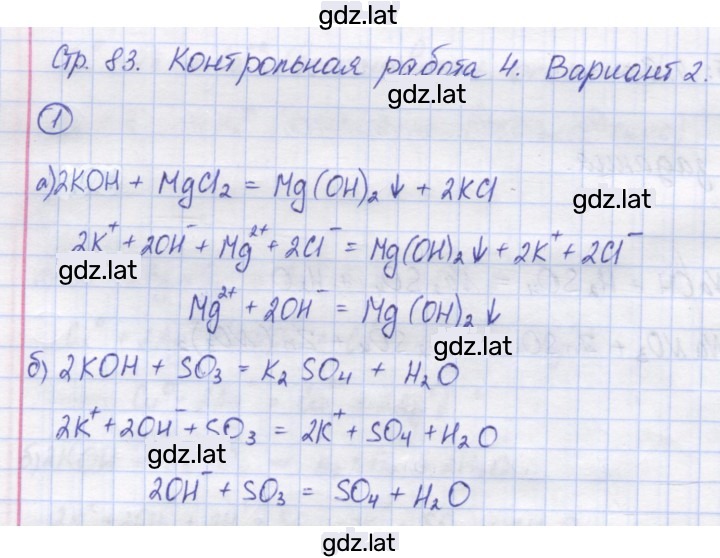 gdz.lat
Стр. 83. Контрольная работа 4. Вариант 2.
gdz.lat
1
а) 2KOH + MgCl₂ = Mg(OH)₂↓ + 2KCl
gdz.lat
2K⁺ + 2OH⁻ + Mg²⁺ + 2Cl⁻ = Mg(OH)₂↓ + 2K⁺ + 2Cl⁻
gdz.lat
Mg²⁺ + 2OH⁻ = Mg(OH)₂↓
gdz.lat
б) 2KOH + SO₃ = K₂SO₄ + H₂O
2K⁺ + 2OH⁻ + SO₃ = 2K⁺ + SO₄ + H₂O
gdz.lat
2OH⁻ + SO₃ = SO₄ + H₂O
gdz.lat